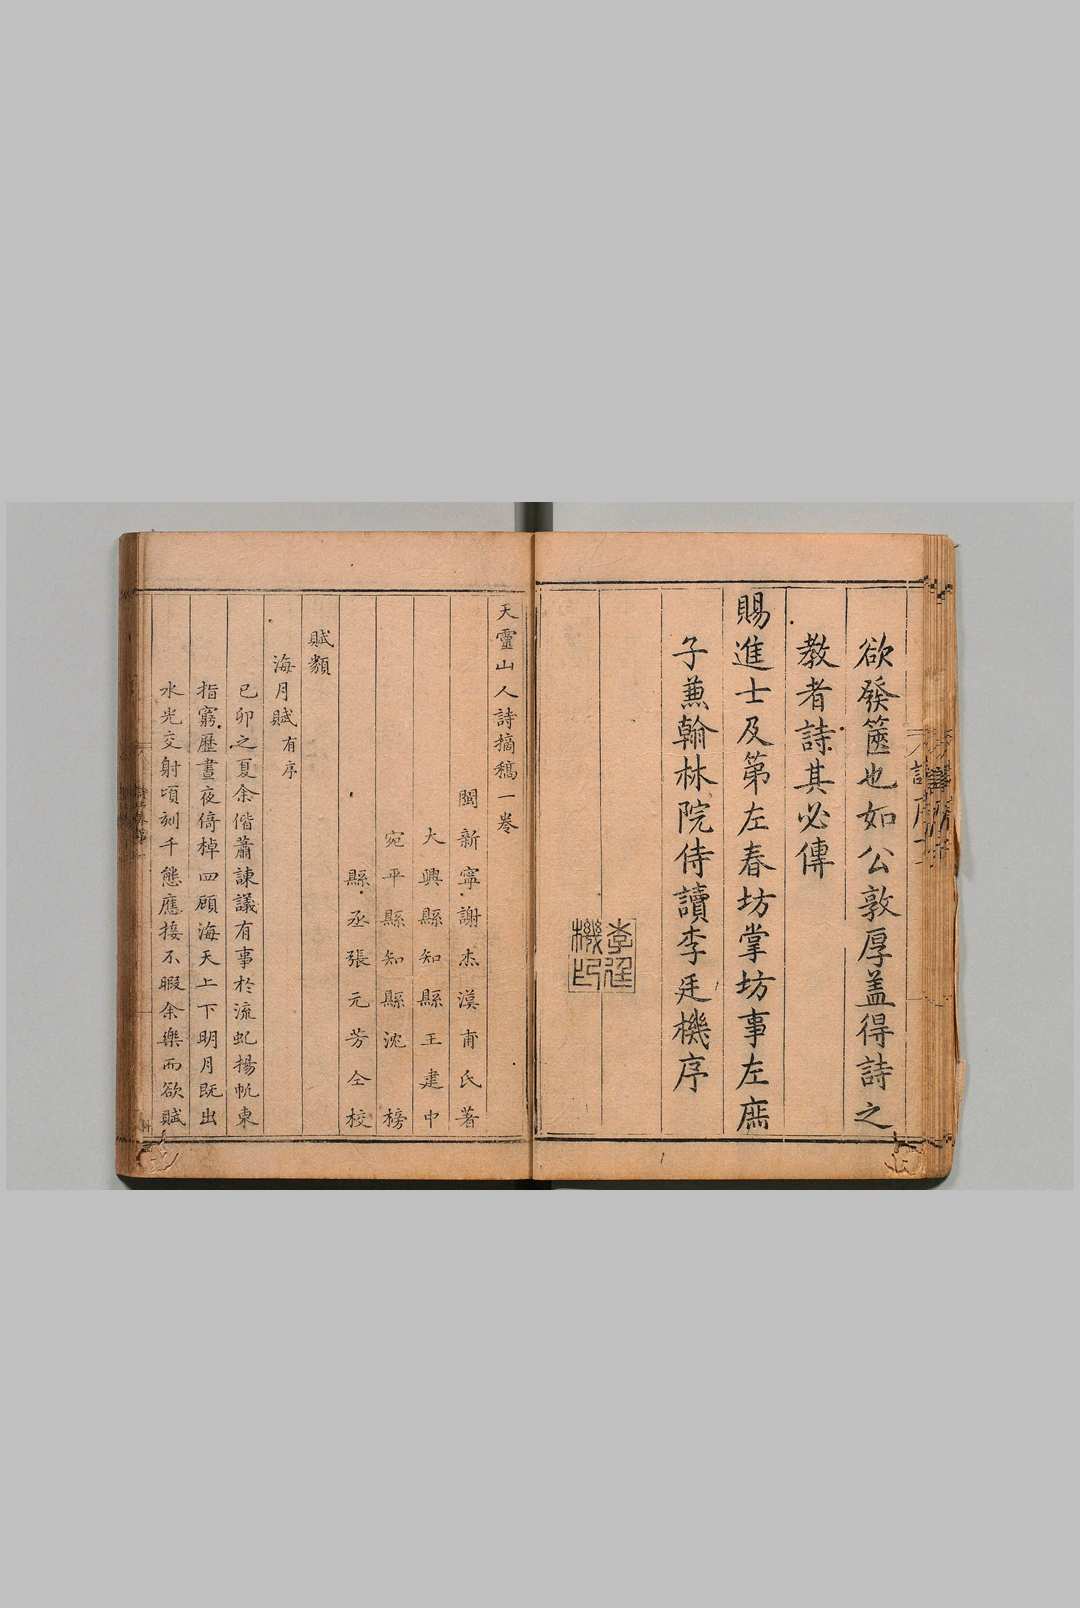 欲發篋也如公敦厚盖得詩之
教者詩其必傳
賜進士及第左春坊掌坊事左庶
子兼翰林院侍讀李廷機序
李廷機印
天靈山人詩摘稿一卷
閩新寧謝杰漢甫氏著
大興縣知縣王建中
宛平縣知縣沈榜
縣丞張元芳仝校
賦類
海月賦有序
己卯之夏余偕蕭諫議有事於流虬揚帆東
指窮歷晝夜倚棹四顧海天上下明月既出
水光交射頃刻千態應接不暇余樂而欲賦